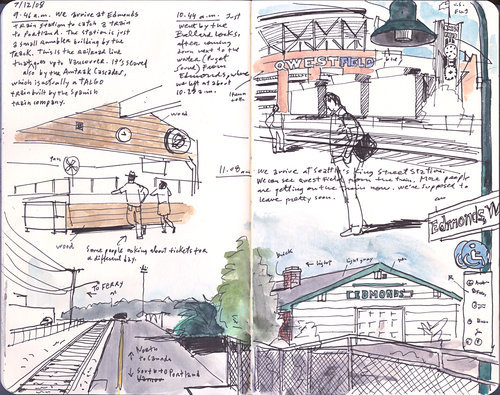 7/12/08
9:46 a.m. We arrive at Edmonds
train station to catch a train
to Portland. The station is just
a small rambler building by the
track. This is the railroad line
that goes up to Vancouver. It's served
also by the Amtrak Cascades,
which is actually a Talgo
train built by the Spanish
train company.
wood
fan
wood
Some people asking about tickets for
a different day.
To Ferry
North
to Canada
South to Portland
10:44 a.m. Just
went by the
Ballard Locks,
after coming
down next to the
water (Puget
Sound) from
Edmonds, where
we left at about
10:29 a.m.
11:08 am
QWESTFIELD
blue
We arrive at Seattle's King Street Station.
We can see Qwest Field from the train. More people
are getting on the train now. We're supposed to
leave pretty soon.
Edmonds, W
brick
light
light gray
EDMONDS